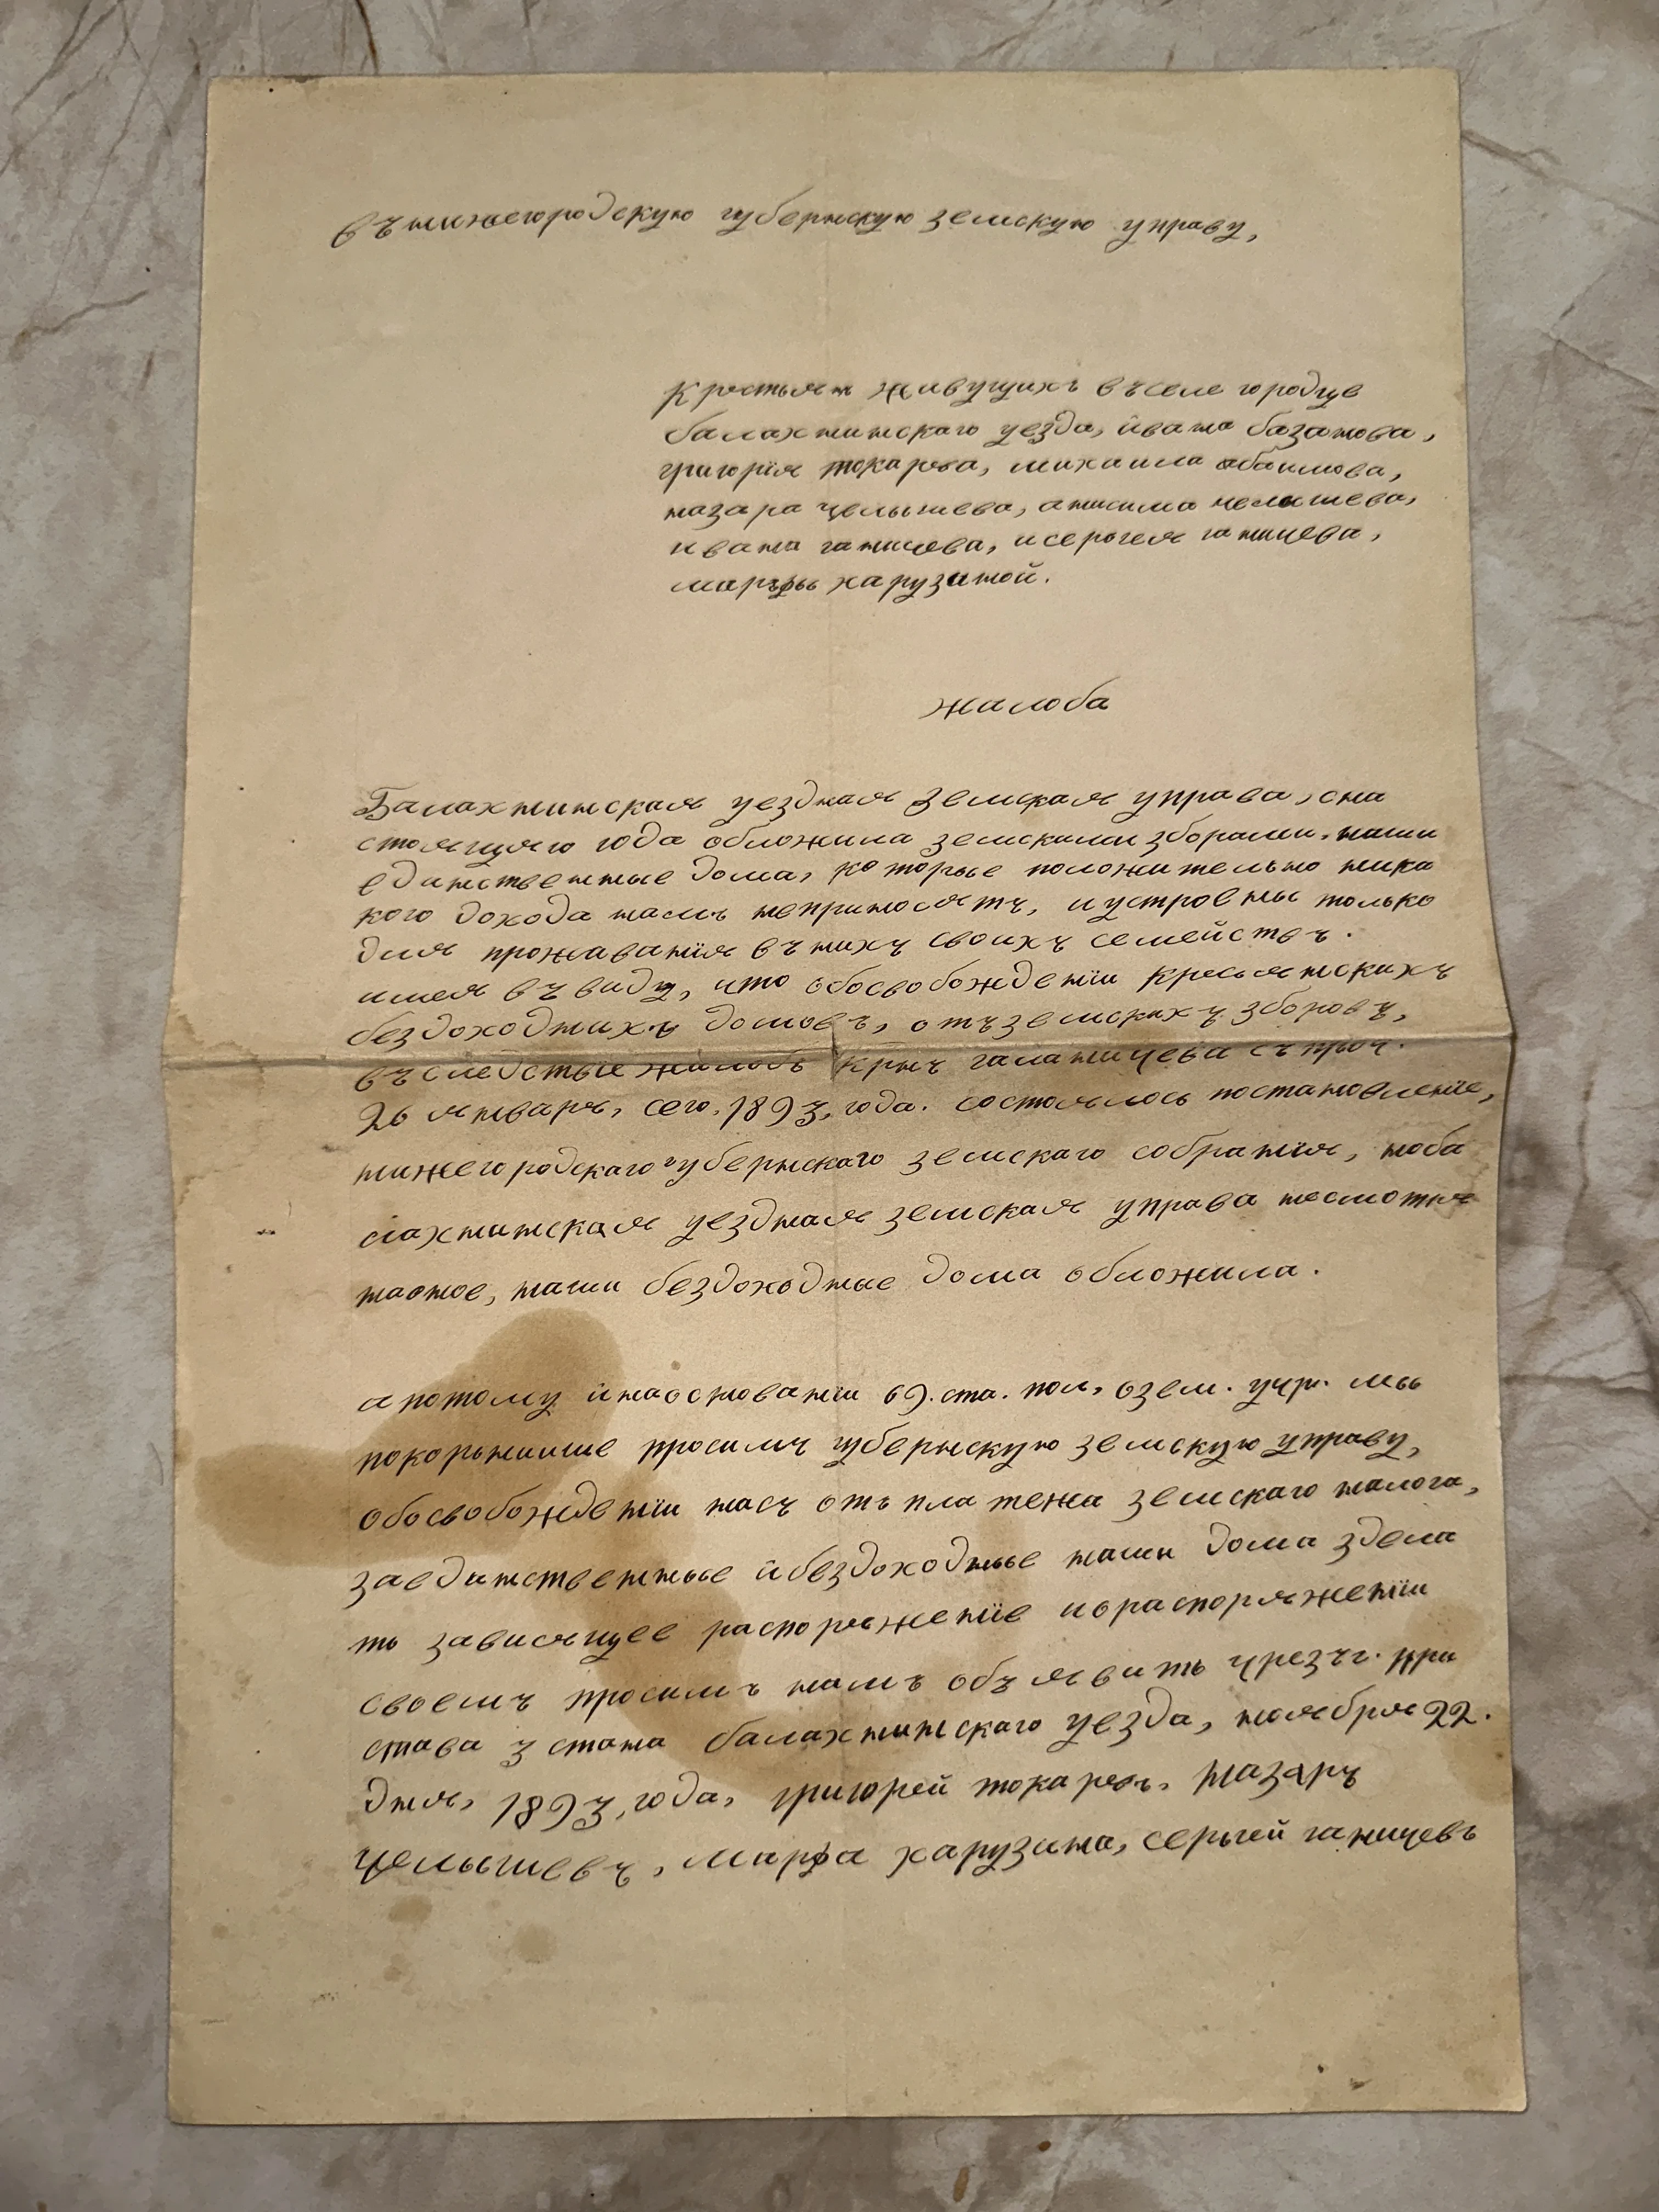 въ нижегородскую губернскую земскую управу,
Крестьян живущихъ въ селе городце
балахнинскаго уезда, ивана базанова,
григорія токарева, михаила абаимова,
назара челышева, анисима челышева,
ивана ганичева, и сергея ганичева,
марфы харузиной.
жалоба
Балахнинская уездная земская управа, с на
стоящяго года обложила земскими зборами, наши
единственные дома, которые положительно ника
кого дохода намъ неприносятъ, и устроены только
для проживанія въ нихъ своихъ семействъ.
имея въ виду, что обосвобожденіи кресьянскихъ
бездоходнихъ домовъ, отъ земскихъ зборовъ,
въследствіе жалобъ крнъ галаничева съ проч.
26 января, сего, 1893, года. состоялось постановленіе,
нижегородскаго губернскаго земскаго собранія, ноба
лахнинская уездная земская управа несмотря
наоное, наши бездоходные дома обложила.
а потому и наоснованіи 69. ста. пол, озем. учр. мы
покорниише просимъ губернскую земскую управу,
обосвобожденіи насъ отъ платежа земскаго налога,
заединственные и бездоходные наши дома здела
ть зависящее распоряженіе и ораспоряженіи
своемъ просимъ намъ объявить чрезъ г. при
става 3 стана балахнинскаго уезда, ноября 22.
дня, 1893, года, григорей токаревъ, Назаръ
Челышевъ, марфа харузина, сергей ганичевъ